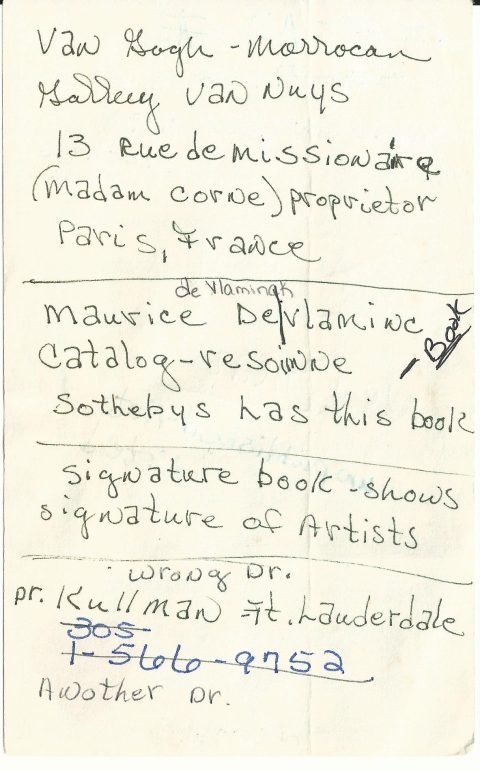 Van Gogh - Morrocan
Gallery Van Nuys
13 Rue de missionaire
(Madam Corne) proprietor
Paris, France
de Vlamingk
Maurice De/Vlaminc
Catalog-resoinne - Book
Sothebys has this book
signature book - shows
signature of Artists
wrong Dr.
pr. Kullman Ft. Lauderdale
305
1-566-9752
Another Dr.